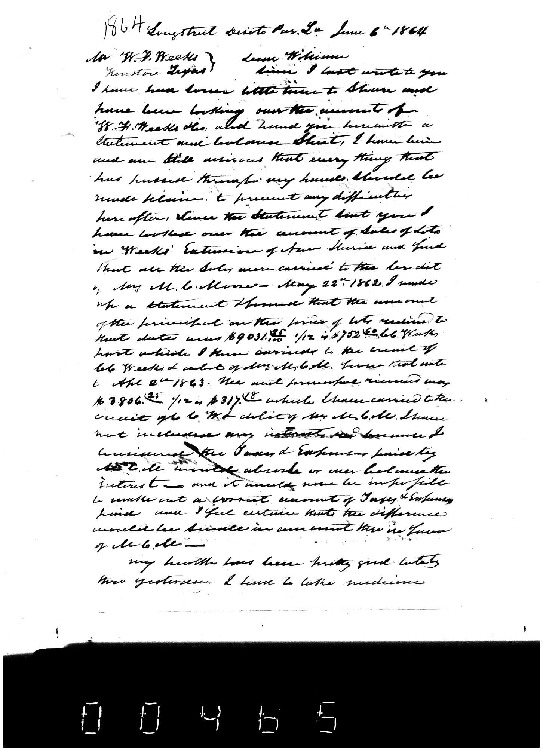 1864 Longstreet Desoto Par. La June 6th 1864
Mr W. F. Weeks } Dear William
Houston Texas } Since I last wrote to you
I have had some little time to Spare and
have been looking over the account of
W. F. Weeks & Co. and hand you herewith a
Statement and balance Sheet, I have been
and am Still desirous that every thing that
has passed through my hands Should be
made plain to prevent any difficulties
hereafter. Since the Statement Sent you I
have looked over the account of Sales of Lots
in Weeks' Extension of New Iberia and find
that all the Sales were carried to the Credit
of Mrs M. C. Moore - May 22nd 1862 I made
up a Statement & found that the amount
of the principal on the price of lots received to
that date was $9031. 1/12 is $752. C C Weeks
part which I then carried to the credit of
C C Weeks & debit of Mrs M. C. M. from that date
to Apl 2nd 1863 the principal received was
$3806. 1/12 is $317. which I have carried to the
credit of C C W & debit of Mrs M. C. M. I have
not included any interest because I
considered the Taxes & Expenses paid by
M C M would absorb or over balance the
Interest - and it would now be impossible
to make out a correct account of Taxes & Expenses
paid and I feel certain that the difference
would be small in amount & in favor
of M. C. M. -
my health has been pretty good lately
tho yesterday I had to take medicine
00465